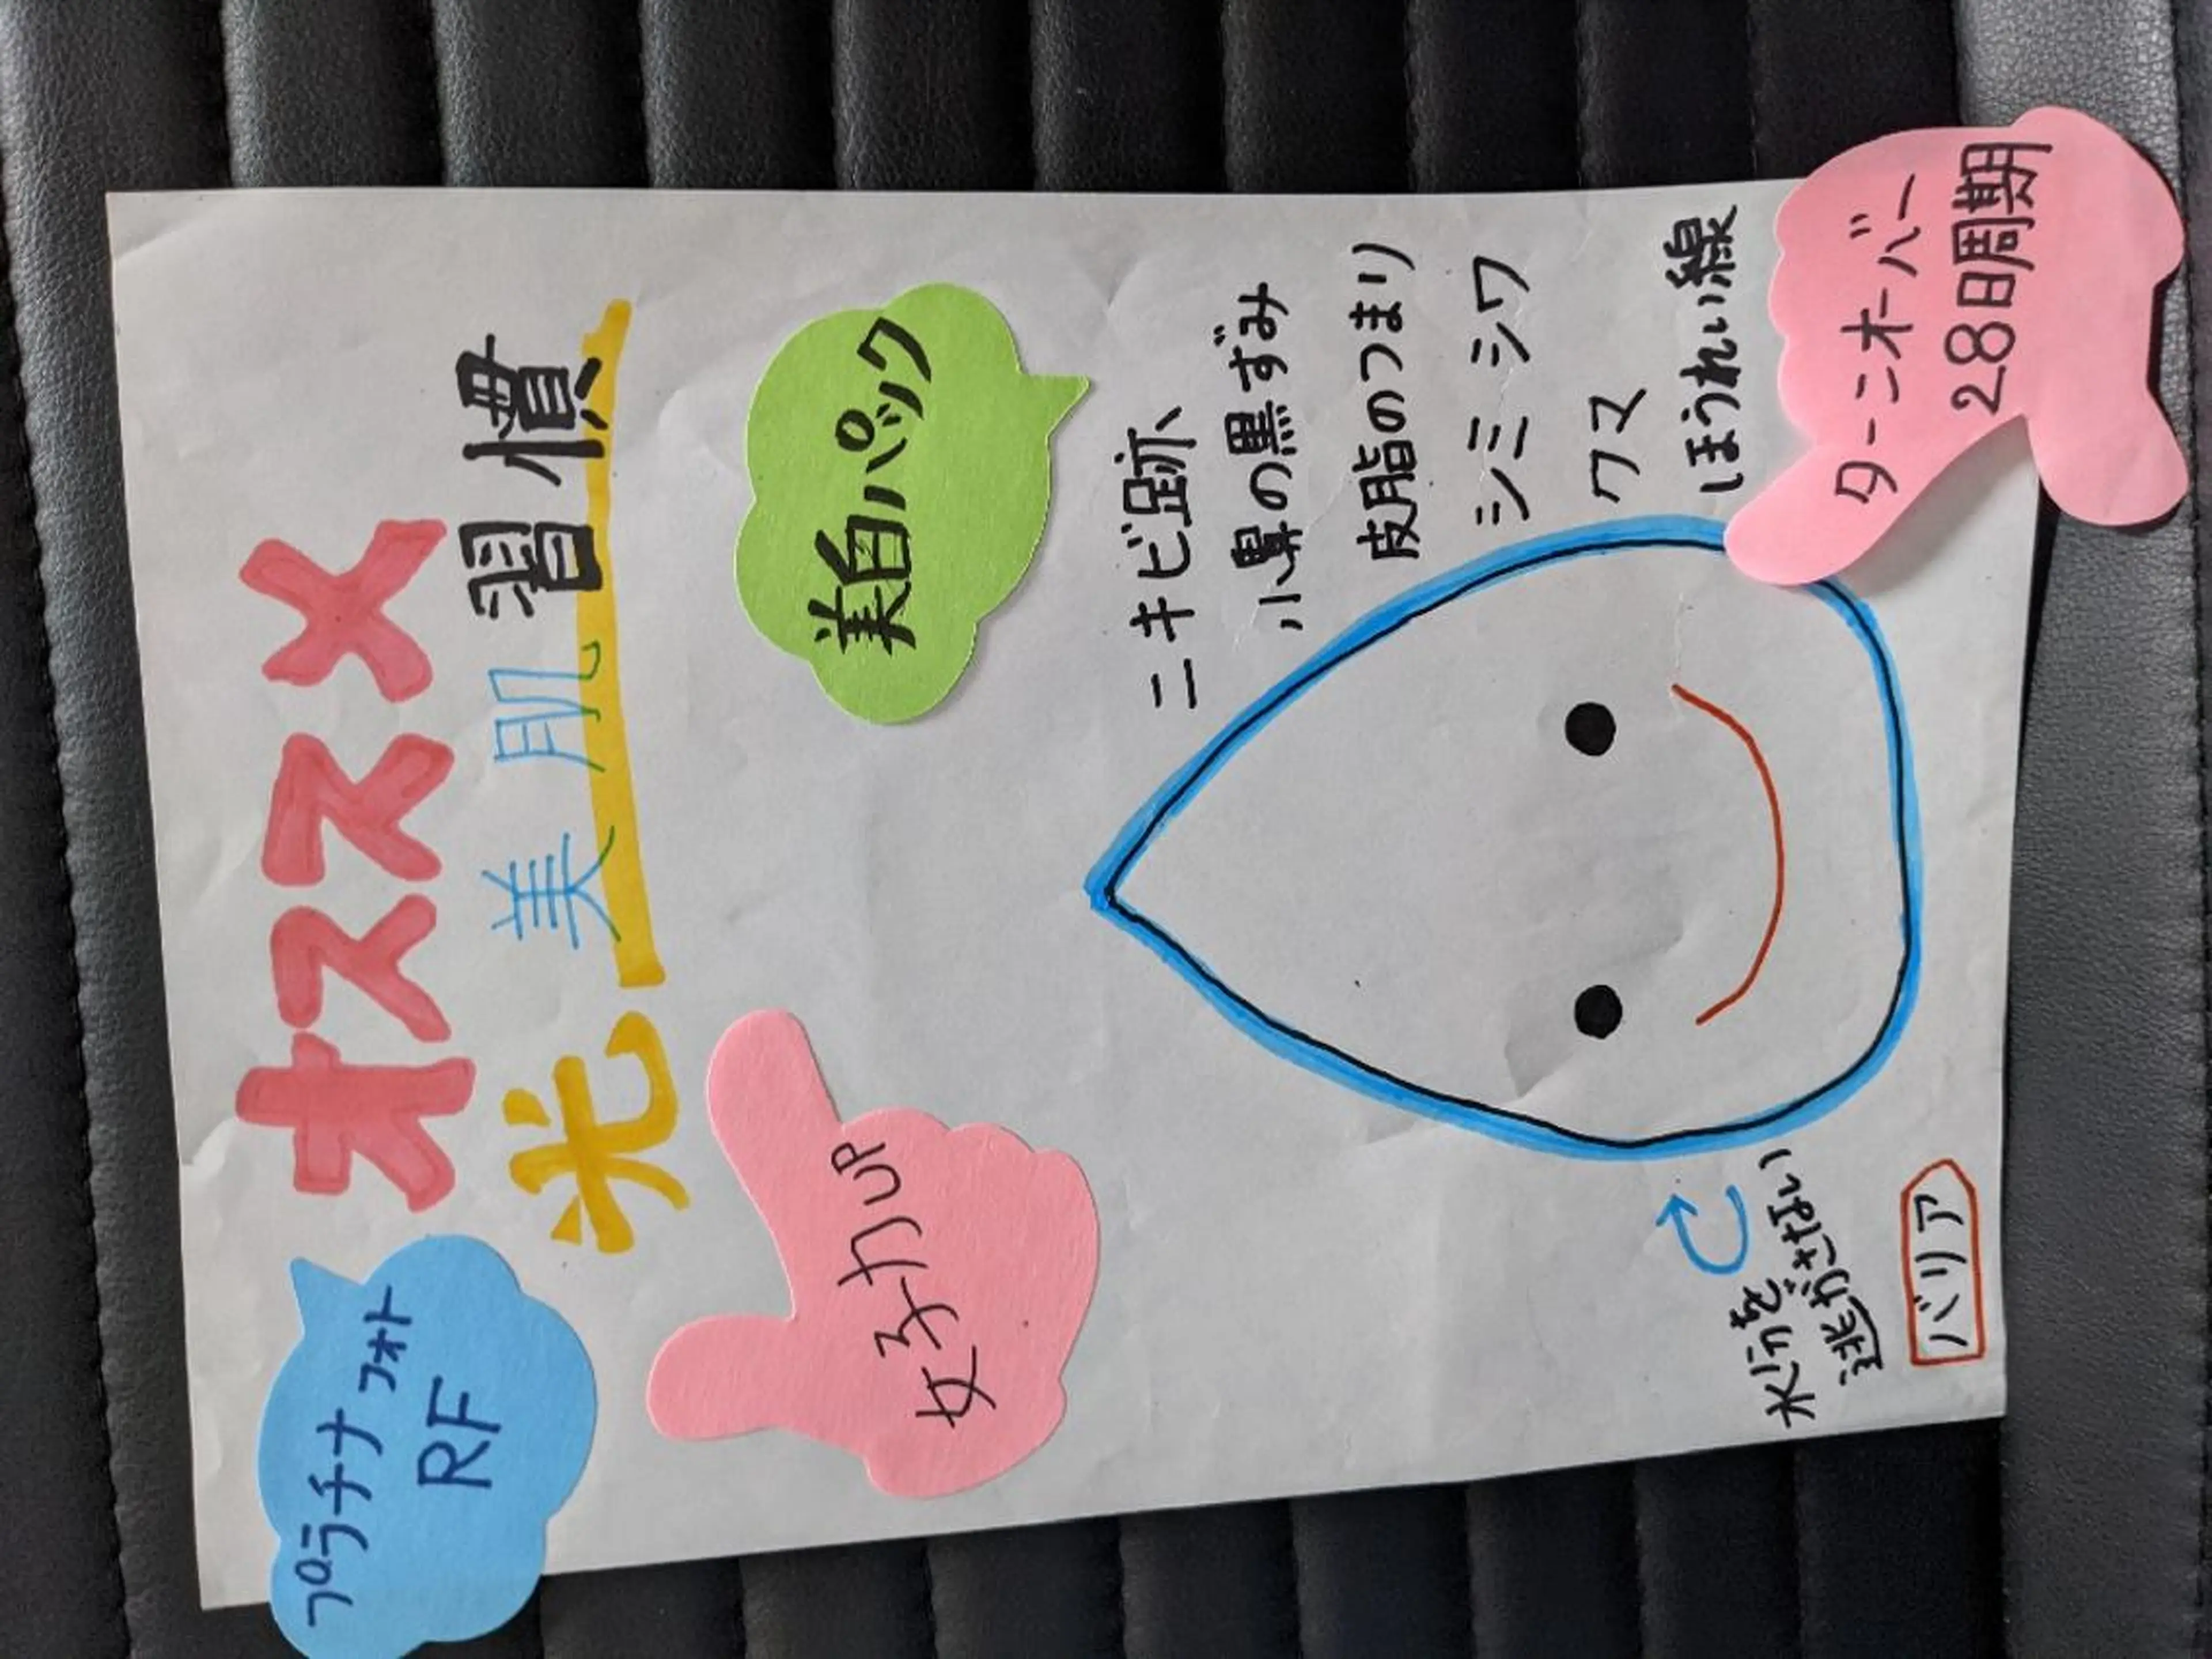 オススメ
光美肌習慣
プラチナフォト
RF
女子力UP
美白パック
ニキビ跡
小鼻の黒ずみ
皮脂のつまり
シミ シワ
クマ
ほうれい線
ターンオーバー
28日周期
水分を
逃がさない
バリア